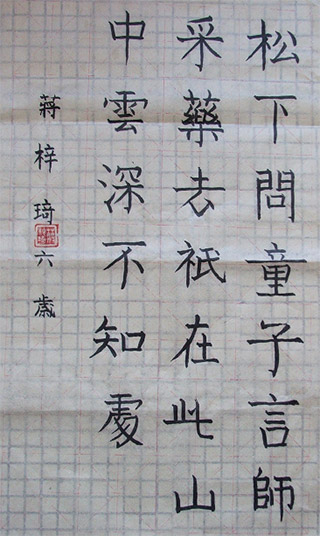 松下問童子言師
采藥去祇在此山
中雲深不知處
蔣梓琦六歲